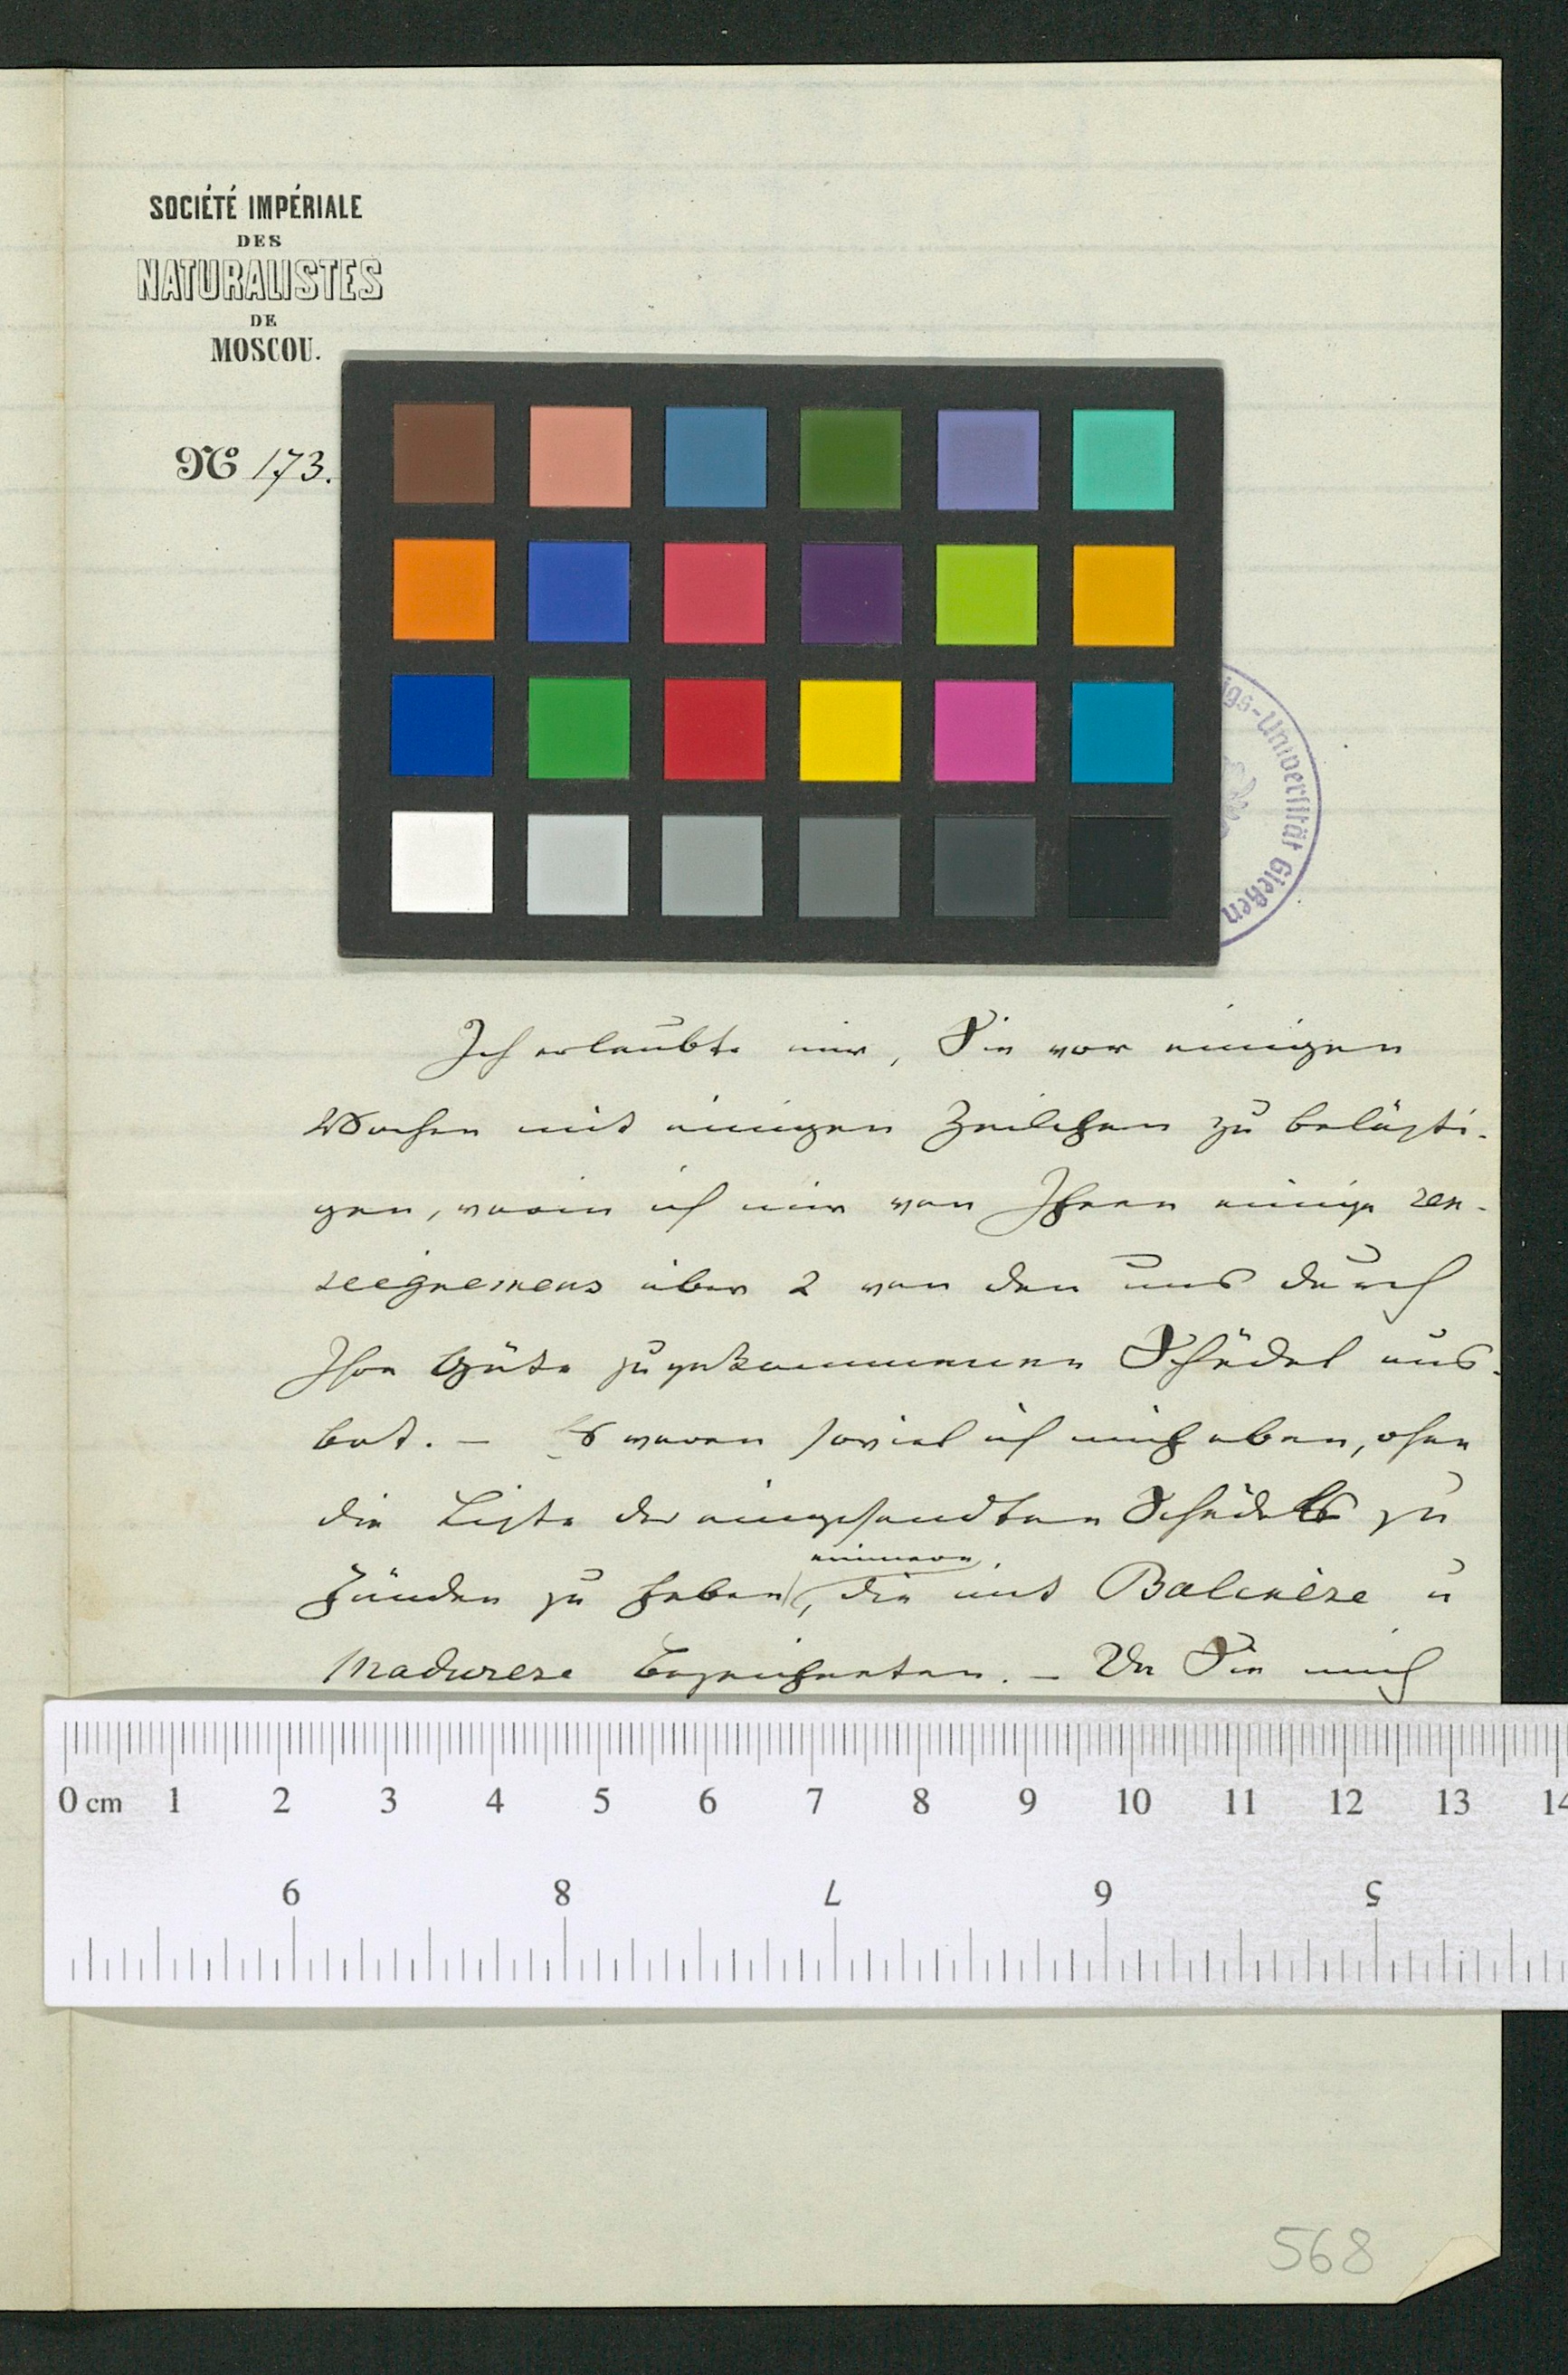 SOCIÉTÉ IMPÉRIALE
DES
NATURALISTES
DE
MOSCOU.
№ 173.
igs-Universität Gießen
Ich erlaubte mir, Sie vor einigen
Wochen mit einigen Zeilchen zu belästi-
gen, worin ich mir von Ihnen einige ren-
seignemens über 2 von den uns durch
Ihre Güte zugekommenen Schädel aus-
bat. – Es waren soviel ich mich eben, ohne
die Liste der eingesandten Schädel zu
Händen zu haben, erinnere, die mit Balinèse u
Madurese bezeichneten. – Da Sie mich
0 cm 1 2 3 4 5 6 7 8 9 10 11 12 13 14
9 8 7 6 5
568